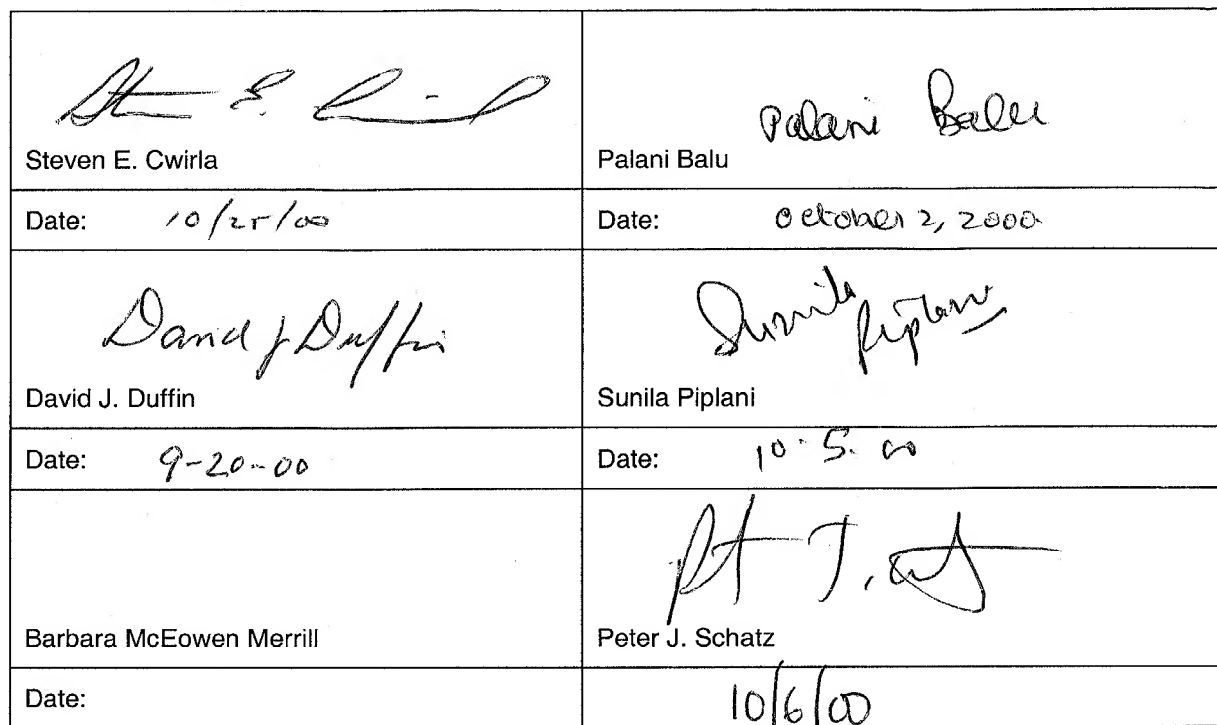 Steven E. Cwirla
Palani Balu
Palani Balu
Date: 10/25/00
Date: October 2, 2000
David J Duffin
David J. Duffin
Sunila Piplani
Sunila Piplani
Date: 9-20-00
Date: 10.5.00
Barbara McEowen Merrill
Peter J. Schatz
Date:
10/6/00